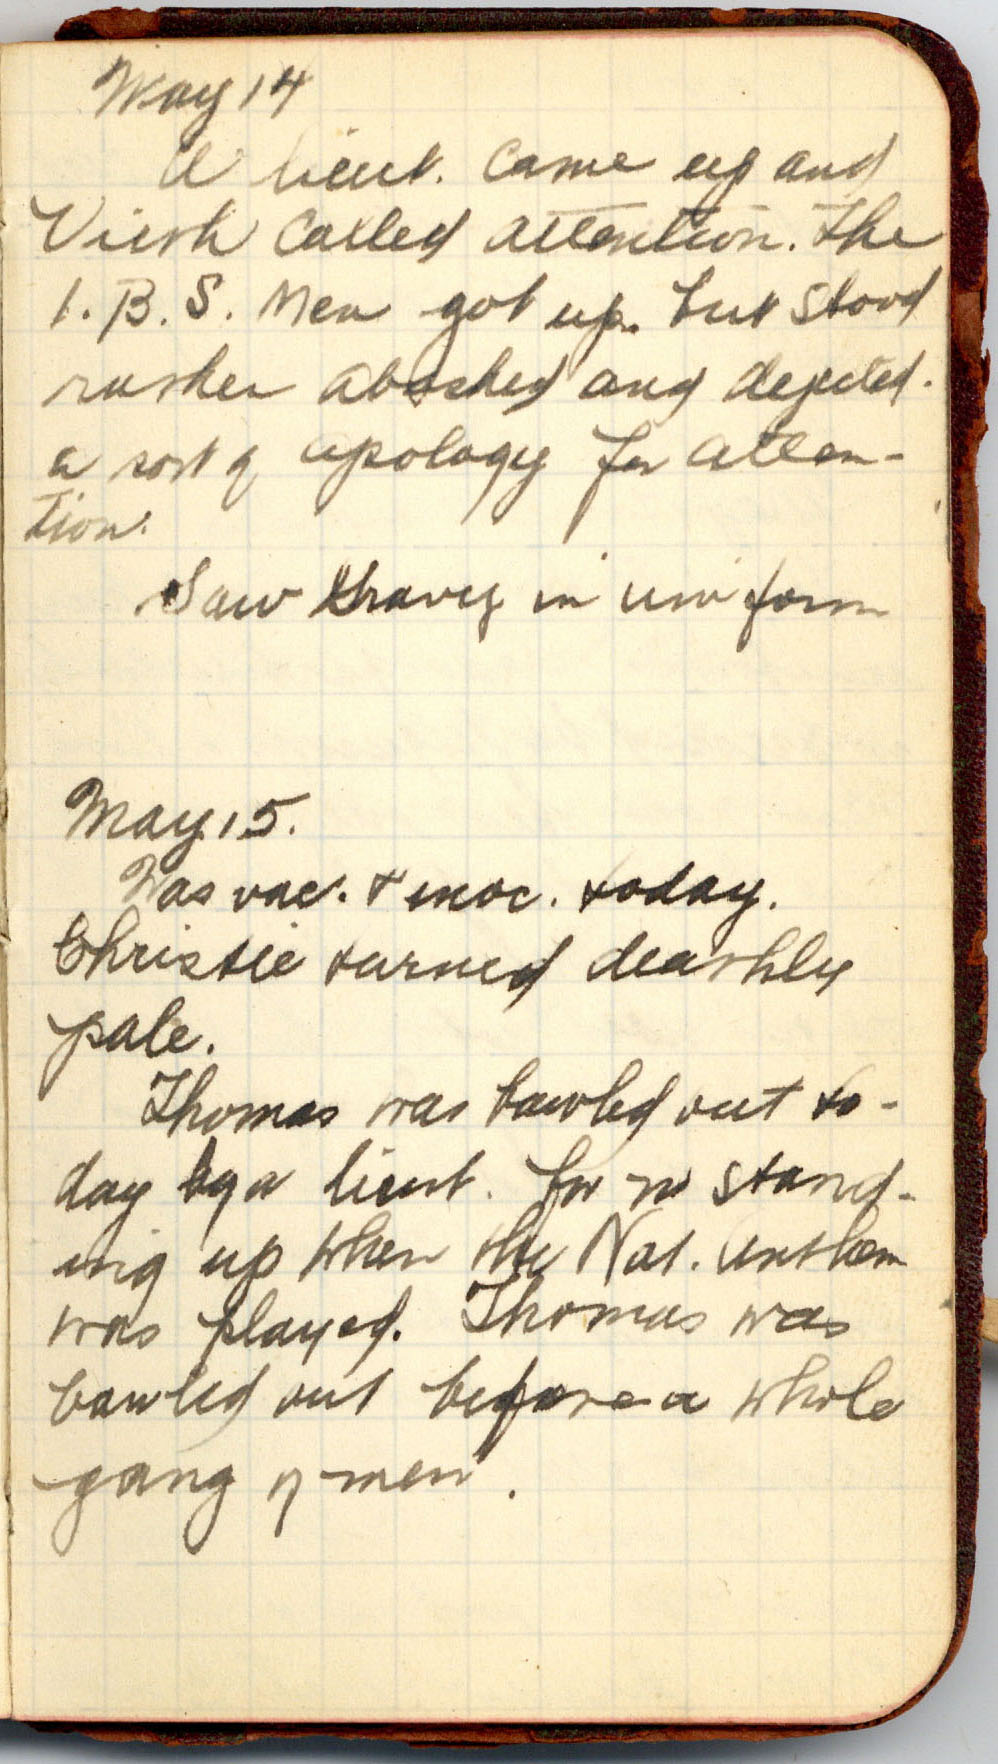 May 14
A lieut. came up and
called attention. The
I. B. S. men got up. but stood
rather abashed and dejected.
a sort of apology for atten-
tion.
Saw in uniform
May 15.
Was vac. & inoc. today.
Christie turned deathly
pale.
Thomas was bawled out to-
day by a lieut. for no stand-
ing up when the Nat. Anthem
was played. Thomas was
bawled out before a whole
gang of men.